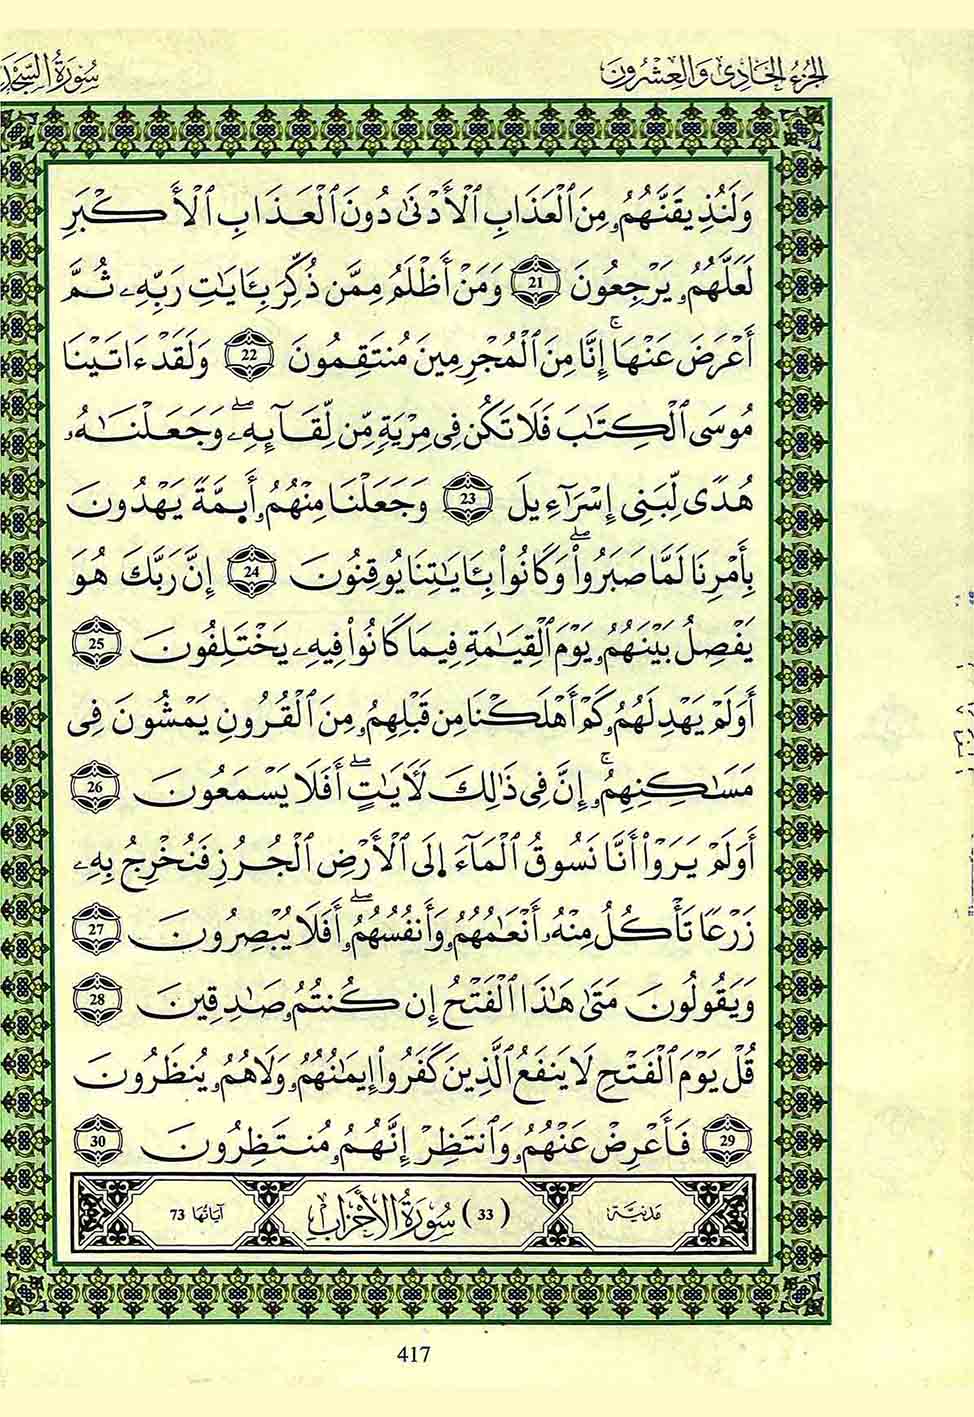 الجزء الحادي والعشرون
سورة السجد
وَلَنُذِيقَنَّهُمُۥ مِنَ ٱلْعَذَابِ ٱلْأَدْنَىٰ دُونَ ٱلْعَذَابِ ٱلْأَكْبَرِ
لَعَلَّهُمُۥ يَرْجِعُونَ 21 وَمَنْ أَظْلَمُ مِمَّن ذُكِّرَ بِـَٔايَٰتِ رَبِّهِۦ ثُمَّ
أَعْرَضَ عَنْهَاۚ إِنَّا مِنَ ٱلْمُجْرِمِينَ مُنتَقِمُونَ 22 وَلَقَدْ ءَاتَيْنَا
مُوسَى ٱلْكِتَٰبَ فَلَا تَكُن فِى مِرْيَةٍ مِّن لِّقَآئِهِۦۖ وَجَعَلْنَٰهُۥ
هُدًى لِّبَنِى إِسْرَآءِيلَ 23 وَجَعَلْنَا مِنْهُمُۥ أَيِمَّةً يَهْدُونَ
بِأَمْرِنَا لَمَّا صَبَرُوا۟ۖ وَكَانُوا۟ بِـَٔايَٰتِنَا يُوقِنُونَ 24 إِنَّ رَبَّكَ هُوَ
يَفْصِلُ بَيْنَهُمُۥ يَوْمَ ٱلْقِيَٰمَةِ فِيمَا كَانُوا۟ فِيهِۦ يَخْتَلِفُونَ 25
أَوَلَمْ يَهْدِ لَهُمُۥ كَمْ أَهْلَكْنَا مِن قَبْلِهِمُۥ مِنَ ٱلْقُرُونِ يَمْشُونَ فِى
مَسَٰكِنِهِمُۥۚ إِنَّ فِى ذَٰلِكَ لَـَٔايَٰتٍۖ أَفَلَا يَسْمَعُونَ 26
أَوَلَمْ يَرَوْا۟ أَنَّا نَسُوقُ ٱلْمَآءَ إِلَى ٱلْأَرْضِ ٱلْجُرُزِ فَنُخْرِجُ بِهِۦ
زَرْعًا تَأْكُلُ مِنْهُۥ أَنْعَٰمُهُمُۥ وَأَنفُسُهُمُۥۖ أَفَلَا يُبْصِرُونَ 27
وَيَقُولُونَ مَتَىٰ هَٰذَا ٱلْفَتْحُ إِن كُنتُمُۥ صَٰدِقِينَ 28
قُلْ يَوْمَ ٱلْفَتْحِ لَا يَنفَعُ ٱلَّذِينَ كَفَرُوا۟ إِيمَٰنُهُمُۥ وَلَا هُمُۥ يُنظَرُونَ
29 فَأَعْرِضْ عَنْهُمُۥ وَٱنتَظِرْ إِنَّهُمُۥ مُنتَظِرُونَ 30
مدنية (33) سورة الأحزاب آياتها 73
417